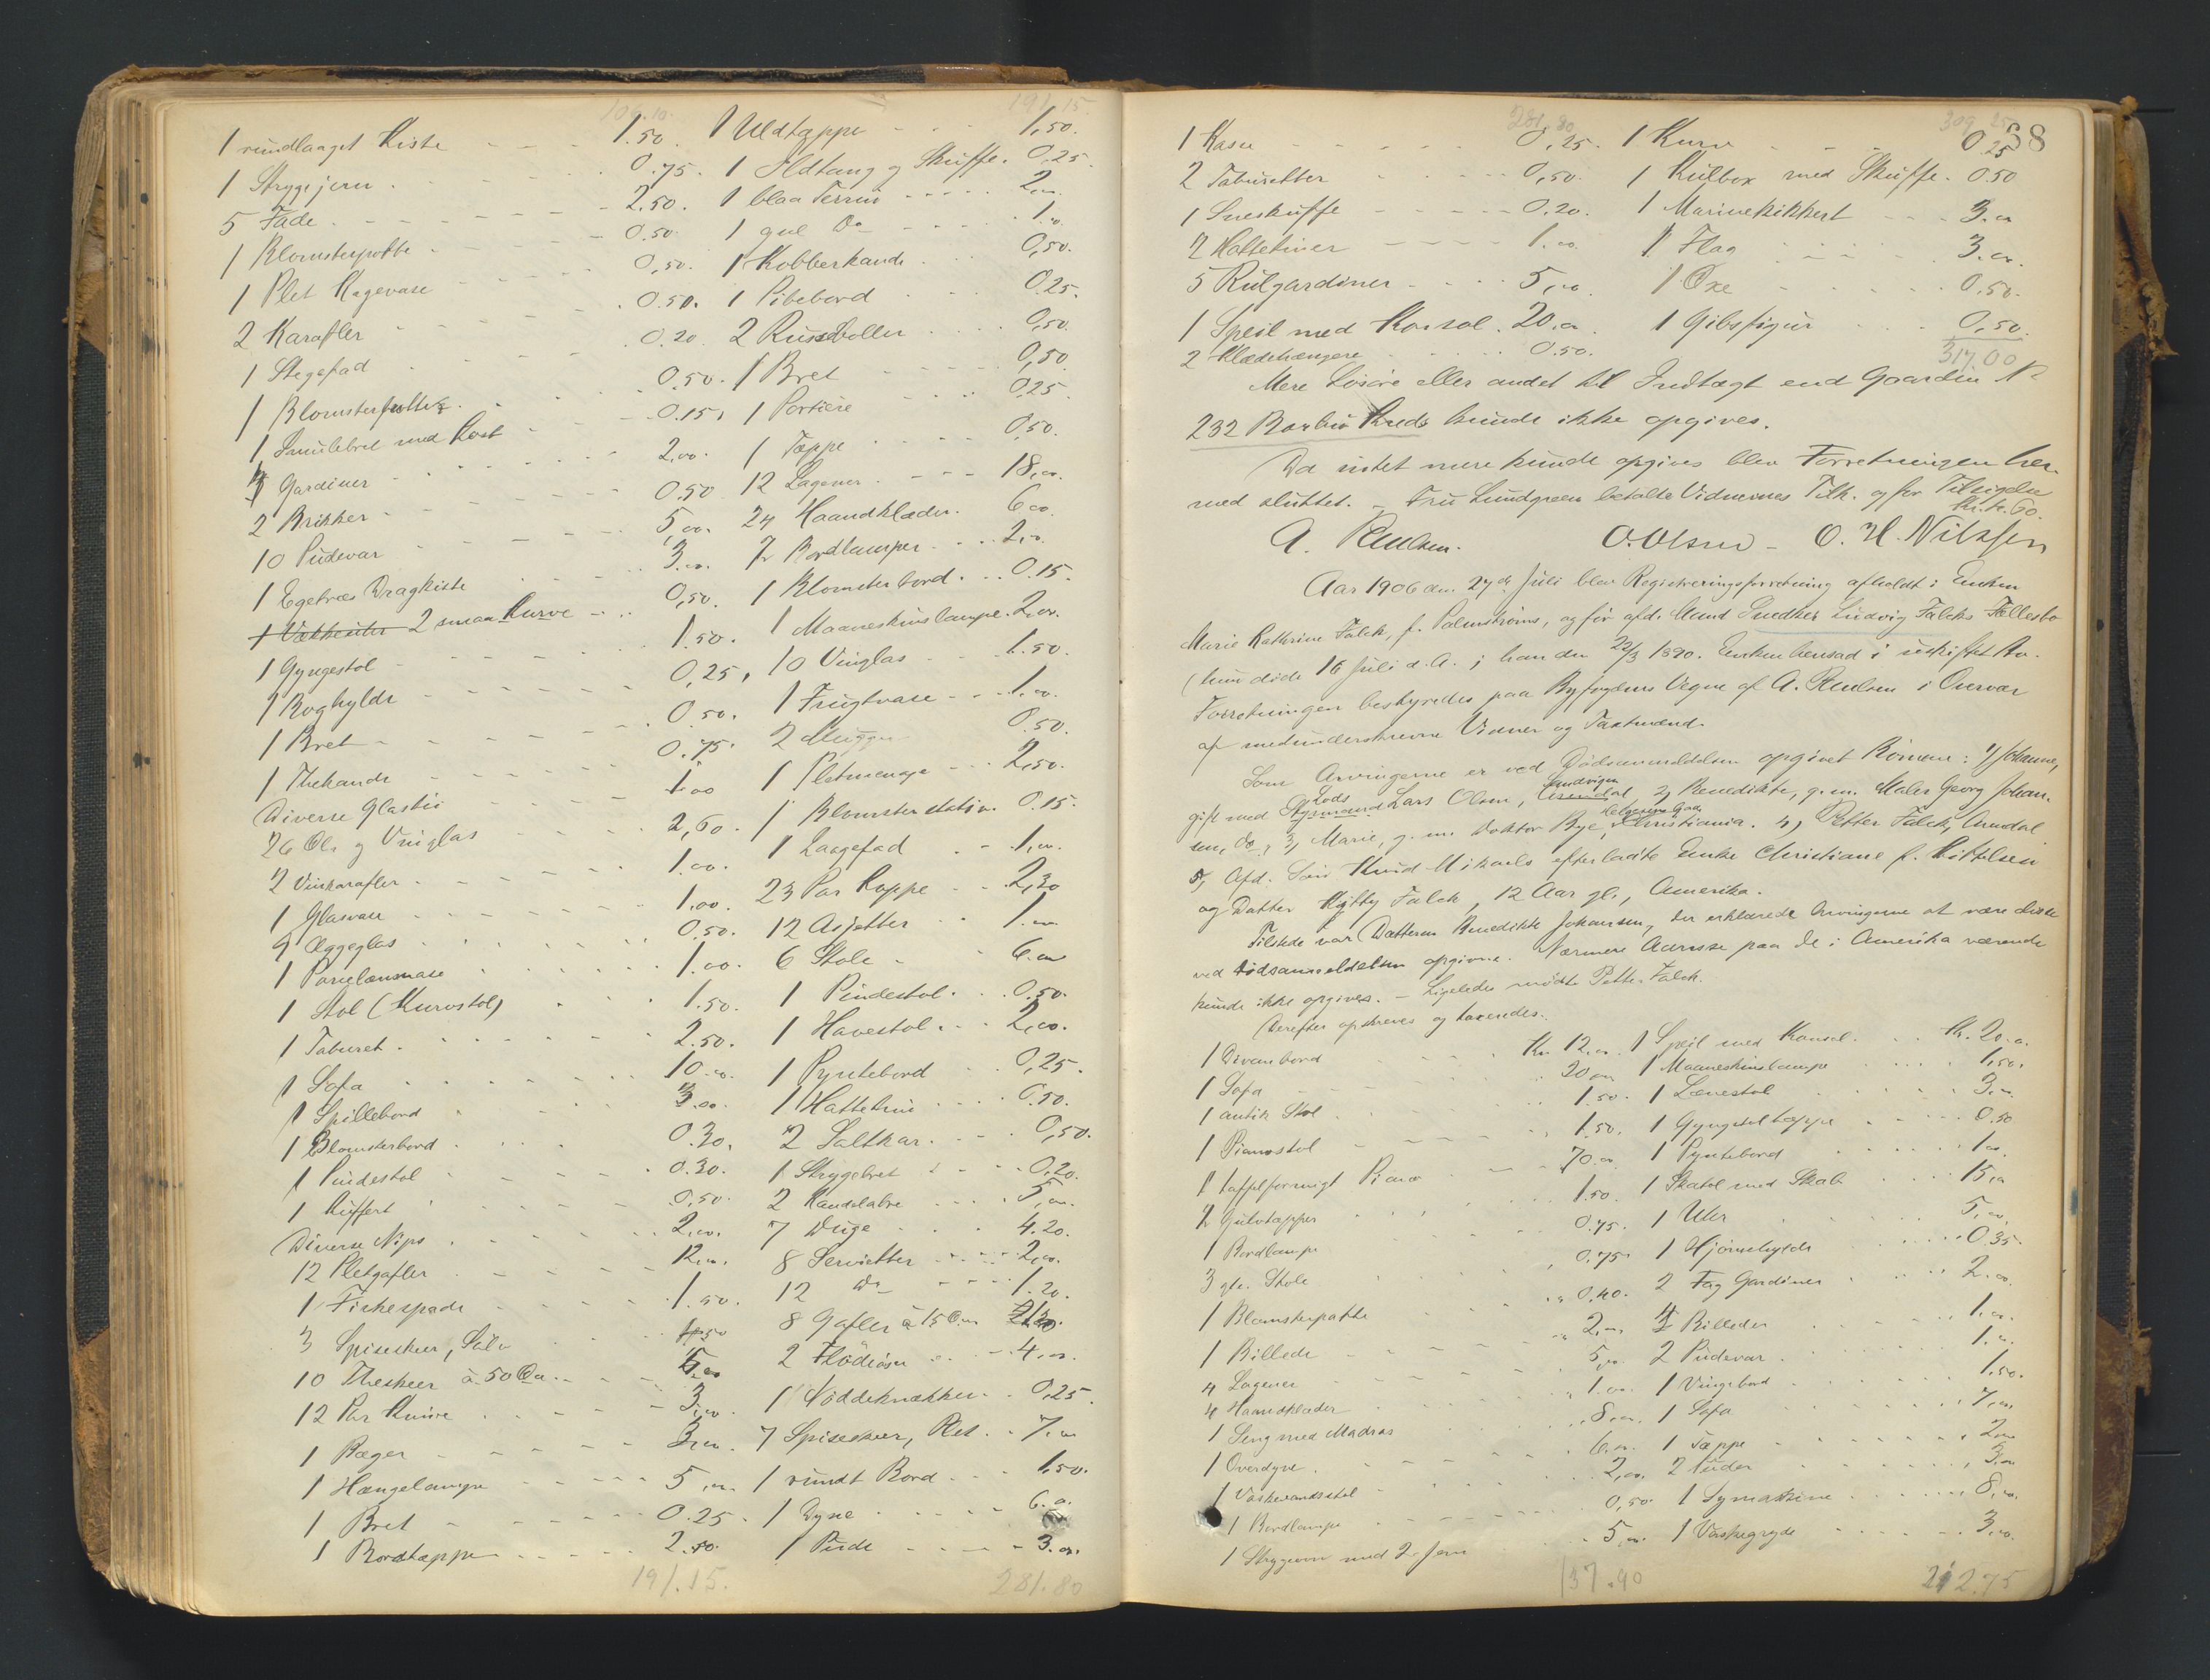 106.10.
1 rundlaaget Kiste 1.50.
1 Strygejern 0.75.
5 Fade 2.50.
1 Blomsterpotte 0.50.
1 Plet Kagevase 0,50.
2 Karafler 0.50.
1 Stegefad 0.20.
1 Blomsterpotte 0.50.
1 Smulebret med Kost 0.15.
Gardiner 2,00.
2 Brikker 0.50
10 Pudevar 5,00.
1 Egetræs Dragkiste 3.00.
1 Vækkeuhr 2 smaa Kurve 0,50.
1 Gyngestol 1.50.
1 Boghylde 0,25.
1 Bret 0.50.
1 Thekande 0.75.
Diverse Glastøi 1.00
26 Øl- og Vinglas 2,60.
2 Vinkarafler 1.00.
1 Glasvase 1.00.
9 Æggeglas 0.50.
1 Porcelænsvase 1.00.
1 Stol (Kurvstol) 1.50.
1 Taburet 2.50.
1 Sofa 10.00.
1 Spillebord 3.00.
1 Blomsterbord 0.30.
1 Pindestol 0.30.
1 Kuffert 0,50.
Diverse Nips 2,00.
12 Pletgafler 12,00.
1 Fiskespade 1.50.
3 Spiseskeer, Sølv
10 Theskeer à 50 Øre 5,00
12 Par Knive 3,00.
1 Bæger 3,00.
1 Hængelampe 5,00.
1 Bret 0.25.
1 Bordtæppe 2.50.
191.15.
191.15
1 Uldtæppe 1,50.
1 Ildtang og Skuffe. 0,25.
1 blaa Terrin 2,00.
1 gul Do 1.00.
1 Kobberkande 0,50.
1 Pibebord 0.25.
2 Punsboller 0,50.
1 Bret 0,50
1 Portiere 0.25
1 Tæppe 0,50.
12 Lagener 18,00.
24 Haandklæder. 6.00.
2 Bordlamper 2,00.
1 Blomsterbord 0.15.
1 Maaneskinslampe. 2,00.
10 Vinglas 1.50.
1 Frugtvase 1.00.
2 Mugger 0.50.
1 Pletmenage 2,50.
1 Blomsterstativ. 0.15.
1 Laagefad 1,00.
23 Par Koppe 2,30
12 Asjetter 1.00
6 Stole 6.00
1 Pindestol 0.50.
1 Havestol 2,00.
1 Pyntebord 0,25.
1 Hattetine 0.50.
2 Saltkar 0,50.
1 Strygebret 0,20.
2 Kandelabre 5,00.
7 Duge 4.20.
8 Servietter 2,00.
12 Do 1.20.
8 Gafler à 15 Øre
2 Flødeøser 4,00.
1 Nøddeknækker 0,25.
7 Spiseskeer, Plet 7,00
1 rundt Bord 1,50.
1 Dyne 6.00.
1 Pude 3.00.
281.80
281.80
1 Kasse 0,25.
2 Taburetter 0,50.
1 Sneskuffe 0.20.
2 Hattetiner 1.00.
5 Rulgardiner 5,00.
1 Speil med Konsol. 20.00.
2 Klædehængere 0.50.
309.25
38
1 Kurv 0.25
1 Kulbox med Skuffe. 0.50
1 Marinekikkert 3.00
1 Flag 3.00.
1 Øxe 0.50.
1 Gibsfigur 0,50.
317.00
Mere Løsøre eller andet til Indtægt end Gaarden No
232 Barbu Kreds kunde ikke opgives.
Da intet mere kunde opgives blev Forretningen her-
med sluttet. – Fru Lundgreen betalte Vidnernes Tilk. og for Tilsigelse
Kr. 1.60.
A. Paulsen. O. Olsen – O. H. Nilssen
Aar 1906 den 27de Juli blev Registreringsforretning afholdt i Enken
Marie Kathrine Falck, f. Palmstrøms, og før afd. Mand Snedker Ludvig Falcks Fællesbo
(hun døde 16 Juli d.A. ; han den 22/3 1890. Enken hensad i uskiftet Bo.
Forretningen bestyredes paa Byfogdens Vegne af A. Paulsen i Overvær
af medunderskrevne Vidner og Taxtmænd.
Som Arvingerne er ved Dødsanmeldelsen opgivet Børnene: 1) Johanne,
gift med Styrmand Lods Lars Olsen, Arendal Sandvigen 2) Benedikte, g. m. Maler Georg Johan-
sen, do, 3) Marie, g. m. Doktor Bye, Christiania. 4) Petter Falck, Arendal
5, Afd. Søn Knud Mikaels efterladte Enke Christiane f. Kittelsen
og Datter Kitty Falck, 12 Aar gl., Amerika.
Tilstede var Datteren Benedikte Johansen, der erklærede Arvingerne at være disse
ved Dødsanmeldelsen opgivne. Nærmere Adresse paa de i Amerika værende
kunde ikke opgives. – Ligeledes mødte Petter Falck.
Derefter opskreves og taxeredes:
1 Divanbord Kr. 12.00.
1 Sofa 20.00
1 antik Stol 1.50.
1 Pianostol 1,50.
1 taffelformigt Piano 70.00
2 Gulvtæpper 1.50.
1 Bordlampe 0.75.
3 gle. Stole 0,75.
1 Blomsterpotte 0,40.
1 Billede 2,00
4 Lagener 5,00.
4 Haandklæder 1.00.
1 Seng med Madras 8,00.
1 Overdyne 6.00.
1 Vaskevandsstel 2,00.
1 Bordlampe 0,50.
1 Strygeovn med 2 Jern 5,00.
137.90
1 Speil med Konsol Kr. 20.00.
1 Maaneskinslampe 1,50.
1 Lænestol 3,00
1 Gyngestoltæppe 0.50
1 Pyntebord 1.00.
1 Skatol med Skab 15,00
1 Uhr 5,00.
1 Hjørnehylde 0.35.
2 Fag Gardiner 2.00.
4 Billeder 1.00.
2 Pudevar 1.00.
1 Vingebord 1,50.
1 Sofa 7,00.
1 Tæppe 2,00
2 Puder 3,00
1 Symaskine 8,00.
1 Vaskegryde 3,00.
212.75